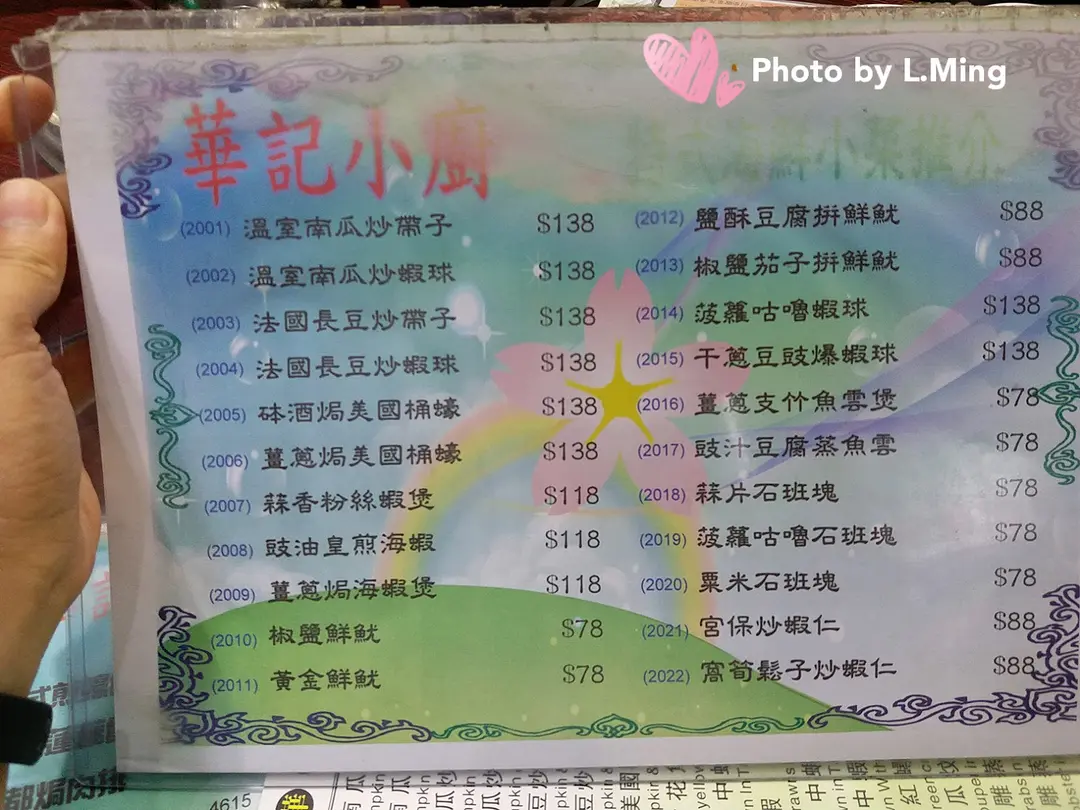 Photo by L.Ming
華記小廚
海鮮小菜推介
(2001) 溫室南瓜炒帶子 $138
(2002) 溫室南瓜炒蝦球 $138
(2003) 法國長豆炒帶子 $138
(2004) 法國長豆炒蝦球 $138
(2005) 砵酒焗美國桶蠔 $138
(2006) 薑蔥焗美國桶蠔 $138
(2007) 蒜香粉絲蝦煲 $118
(2008) 豉油皇煎海蝦 $118
(2009) 薑蔥焗海蝦煲 $118
(2010) 椒鹽鮮魷 $78
(2011) 黃金鮮魷 $78
(2012) 鹽酥豆腐拼鮮魷 $88
(2013) 椒鹽茄子拼鮮魷 $88
(2014) 菠蘿咕嚕蝦球 $138
(2015) 干蔥豆豉爆蝦球 $138
(2016) 薑蔥支竹魚雲煲 $78
(2017) 豉汁豆腐蒸魚雲 $78
(2018) 蒜片石班塊 $78
(2019) 菠蘿咕嚕石班塊 $78
(2020) 粟米石班塊 $78
(2021) 宮保炒蝦仁 $88
(2022) 窩筍鬆子炒蝦仁 $88
4615